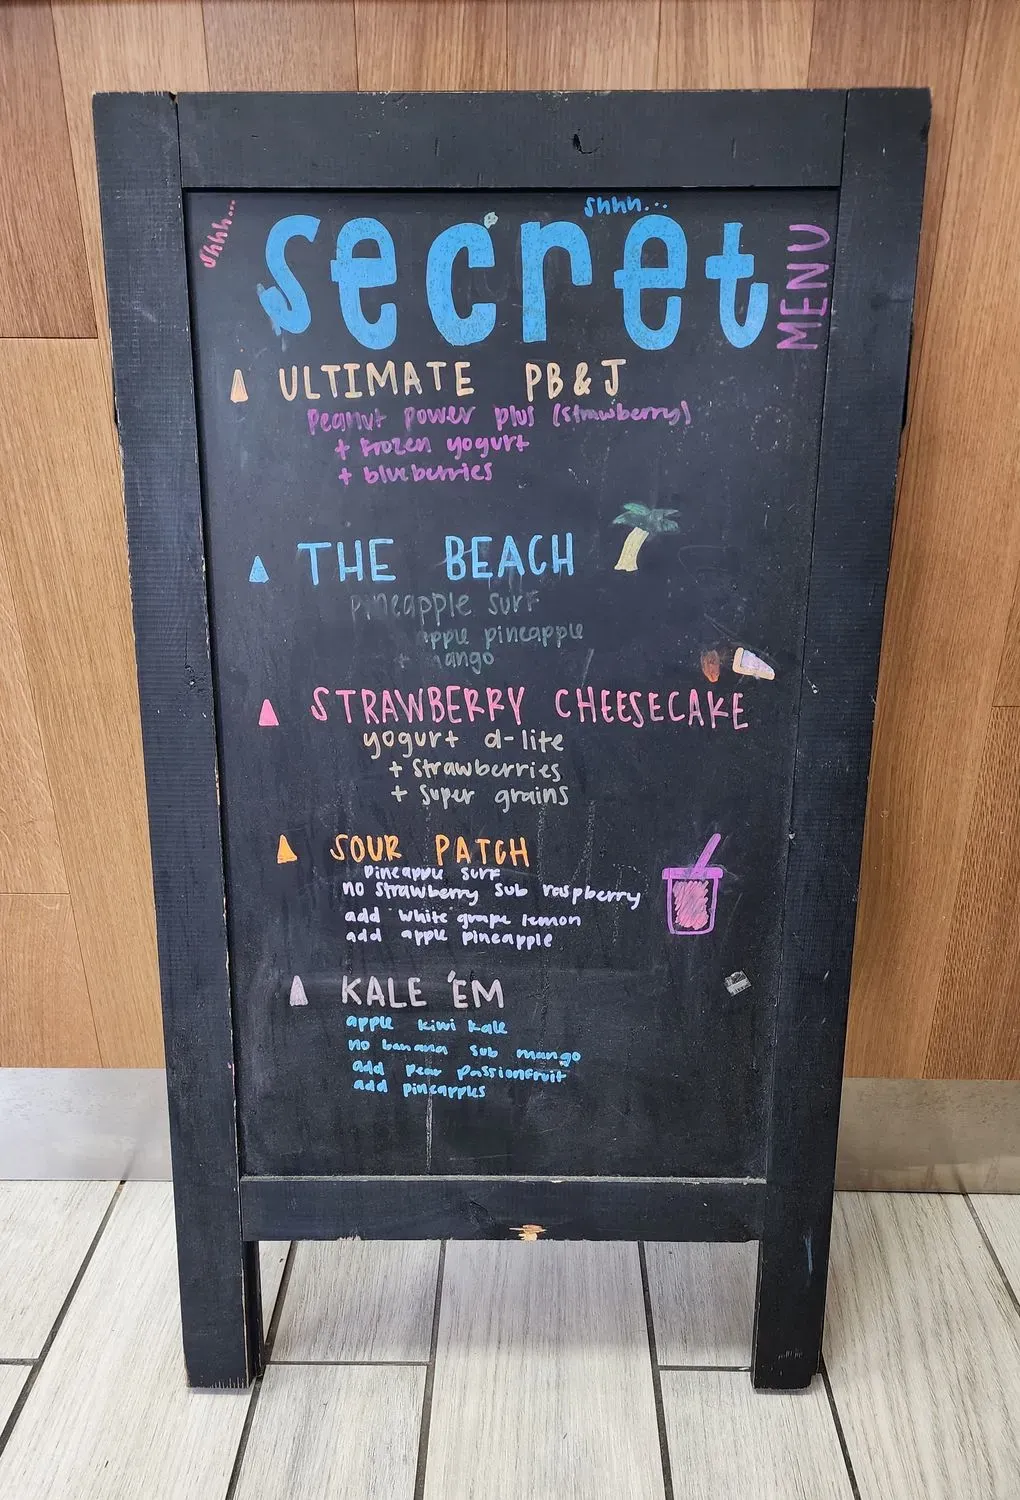 shhh...
shhh...
secret
MENU
ULTIMATE PB&J
peanut power plus (strawberry)
+ frozen yogurt
+ blueberries
THE BEACH
pineapple surf
apple pineapple
+ mango
STRAWBERRY CHEESECAKE
yogurt d-lite
+ strawberries
+ super grains
SOUR PATCH
pineapple surf
no strawberry sub raspberry
add white grape lemon
add apple pineapple
KALE 'EM
apple kiwi kale
no banana sub mango
add pear passionfruit
add pineapples